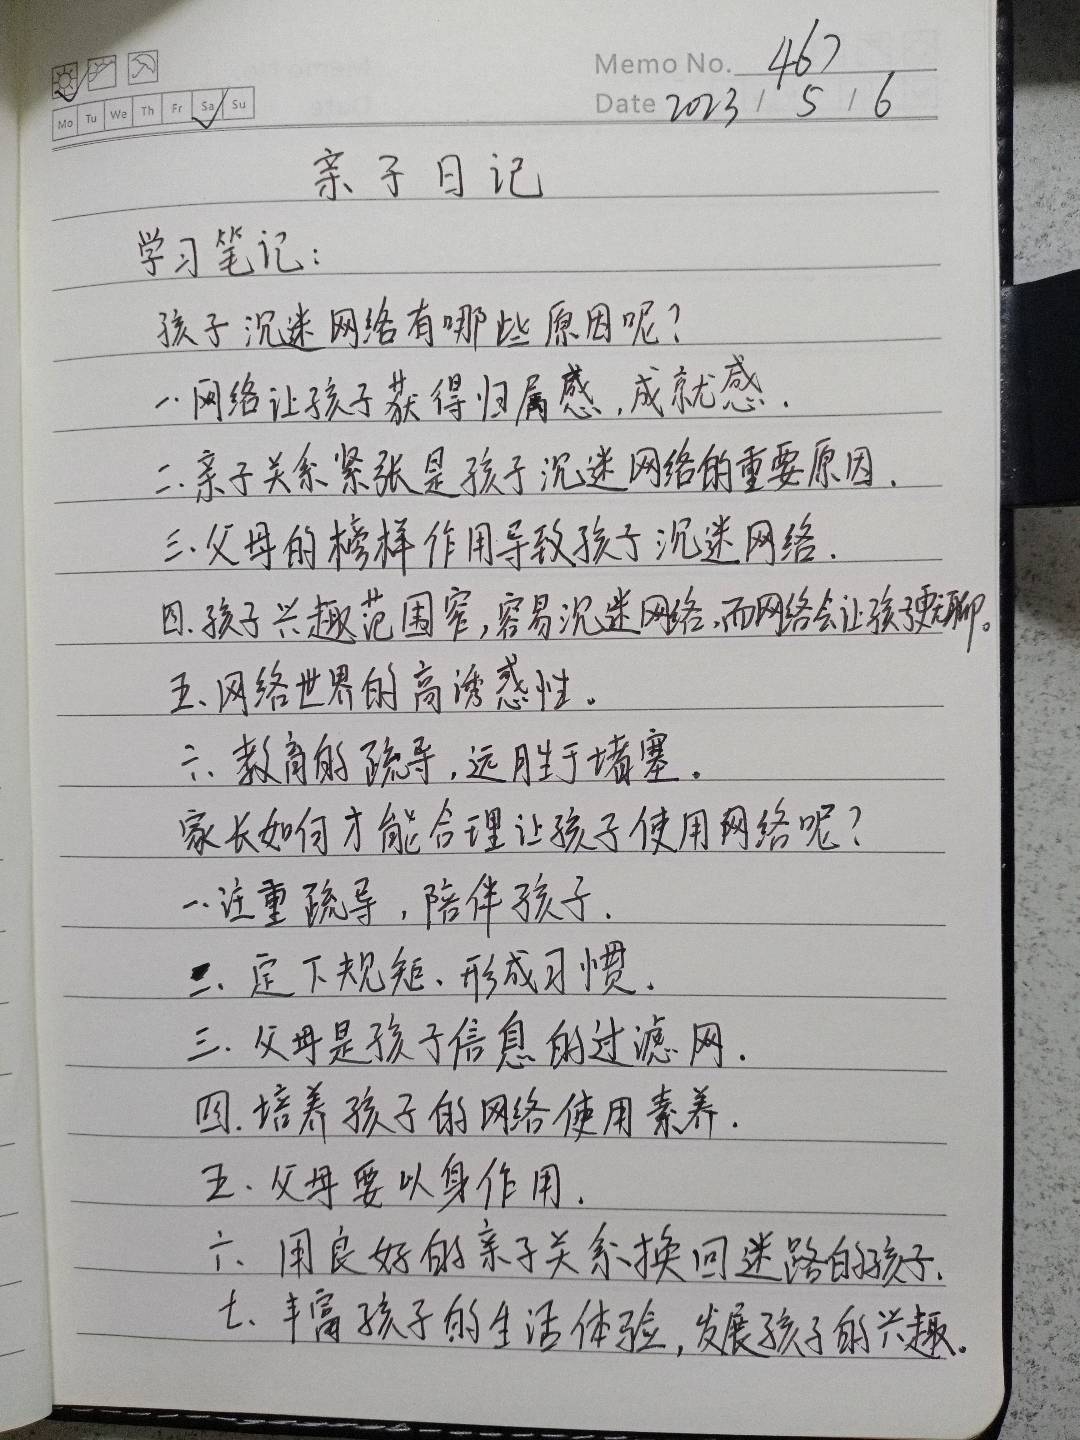 Memo No. 467
Mo Tu We Th Fr Sa Su
Date 2023 / 5 / 6
亲子日记
学习笔记:
孩子沉迷网络有哪些原因呢?
一、网络让孩子获得归属感,成就感.
二.亲子关系紧张是孩子沉迷网络的重要原因.
三.父母的榜样作用导致孩子沉迷网络.
四.孩子兴趣范围窄,容易沉迷网络,而网络会让孩子更无聊。
五、网络世界的高诱惑性。
六、教育的疏导,远胜于堵塞.
家长如何才能合理让孩子使用网络呢?
一、注重疏导,陪伴孩子.
二、定下规矩、形成习惯.
三.父母是孩子信息的过滤网.
四.培养孩子的网络使用素养.
五.父母要以身作用.
六、用良好的亲子关系换回迷路的孩子.
七、丰富孩子的生活体验,发展孩子的兴趣。